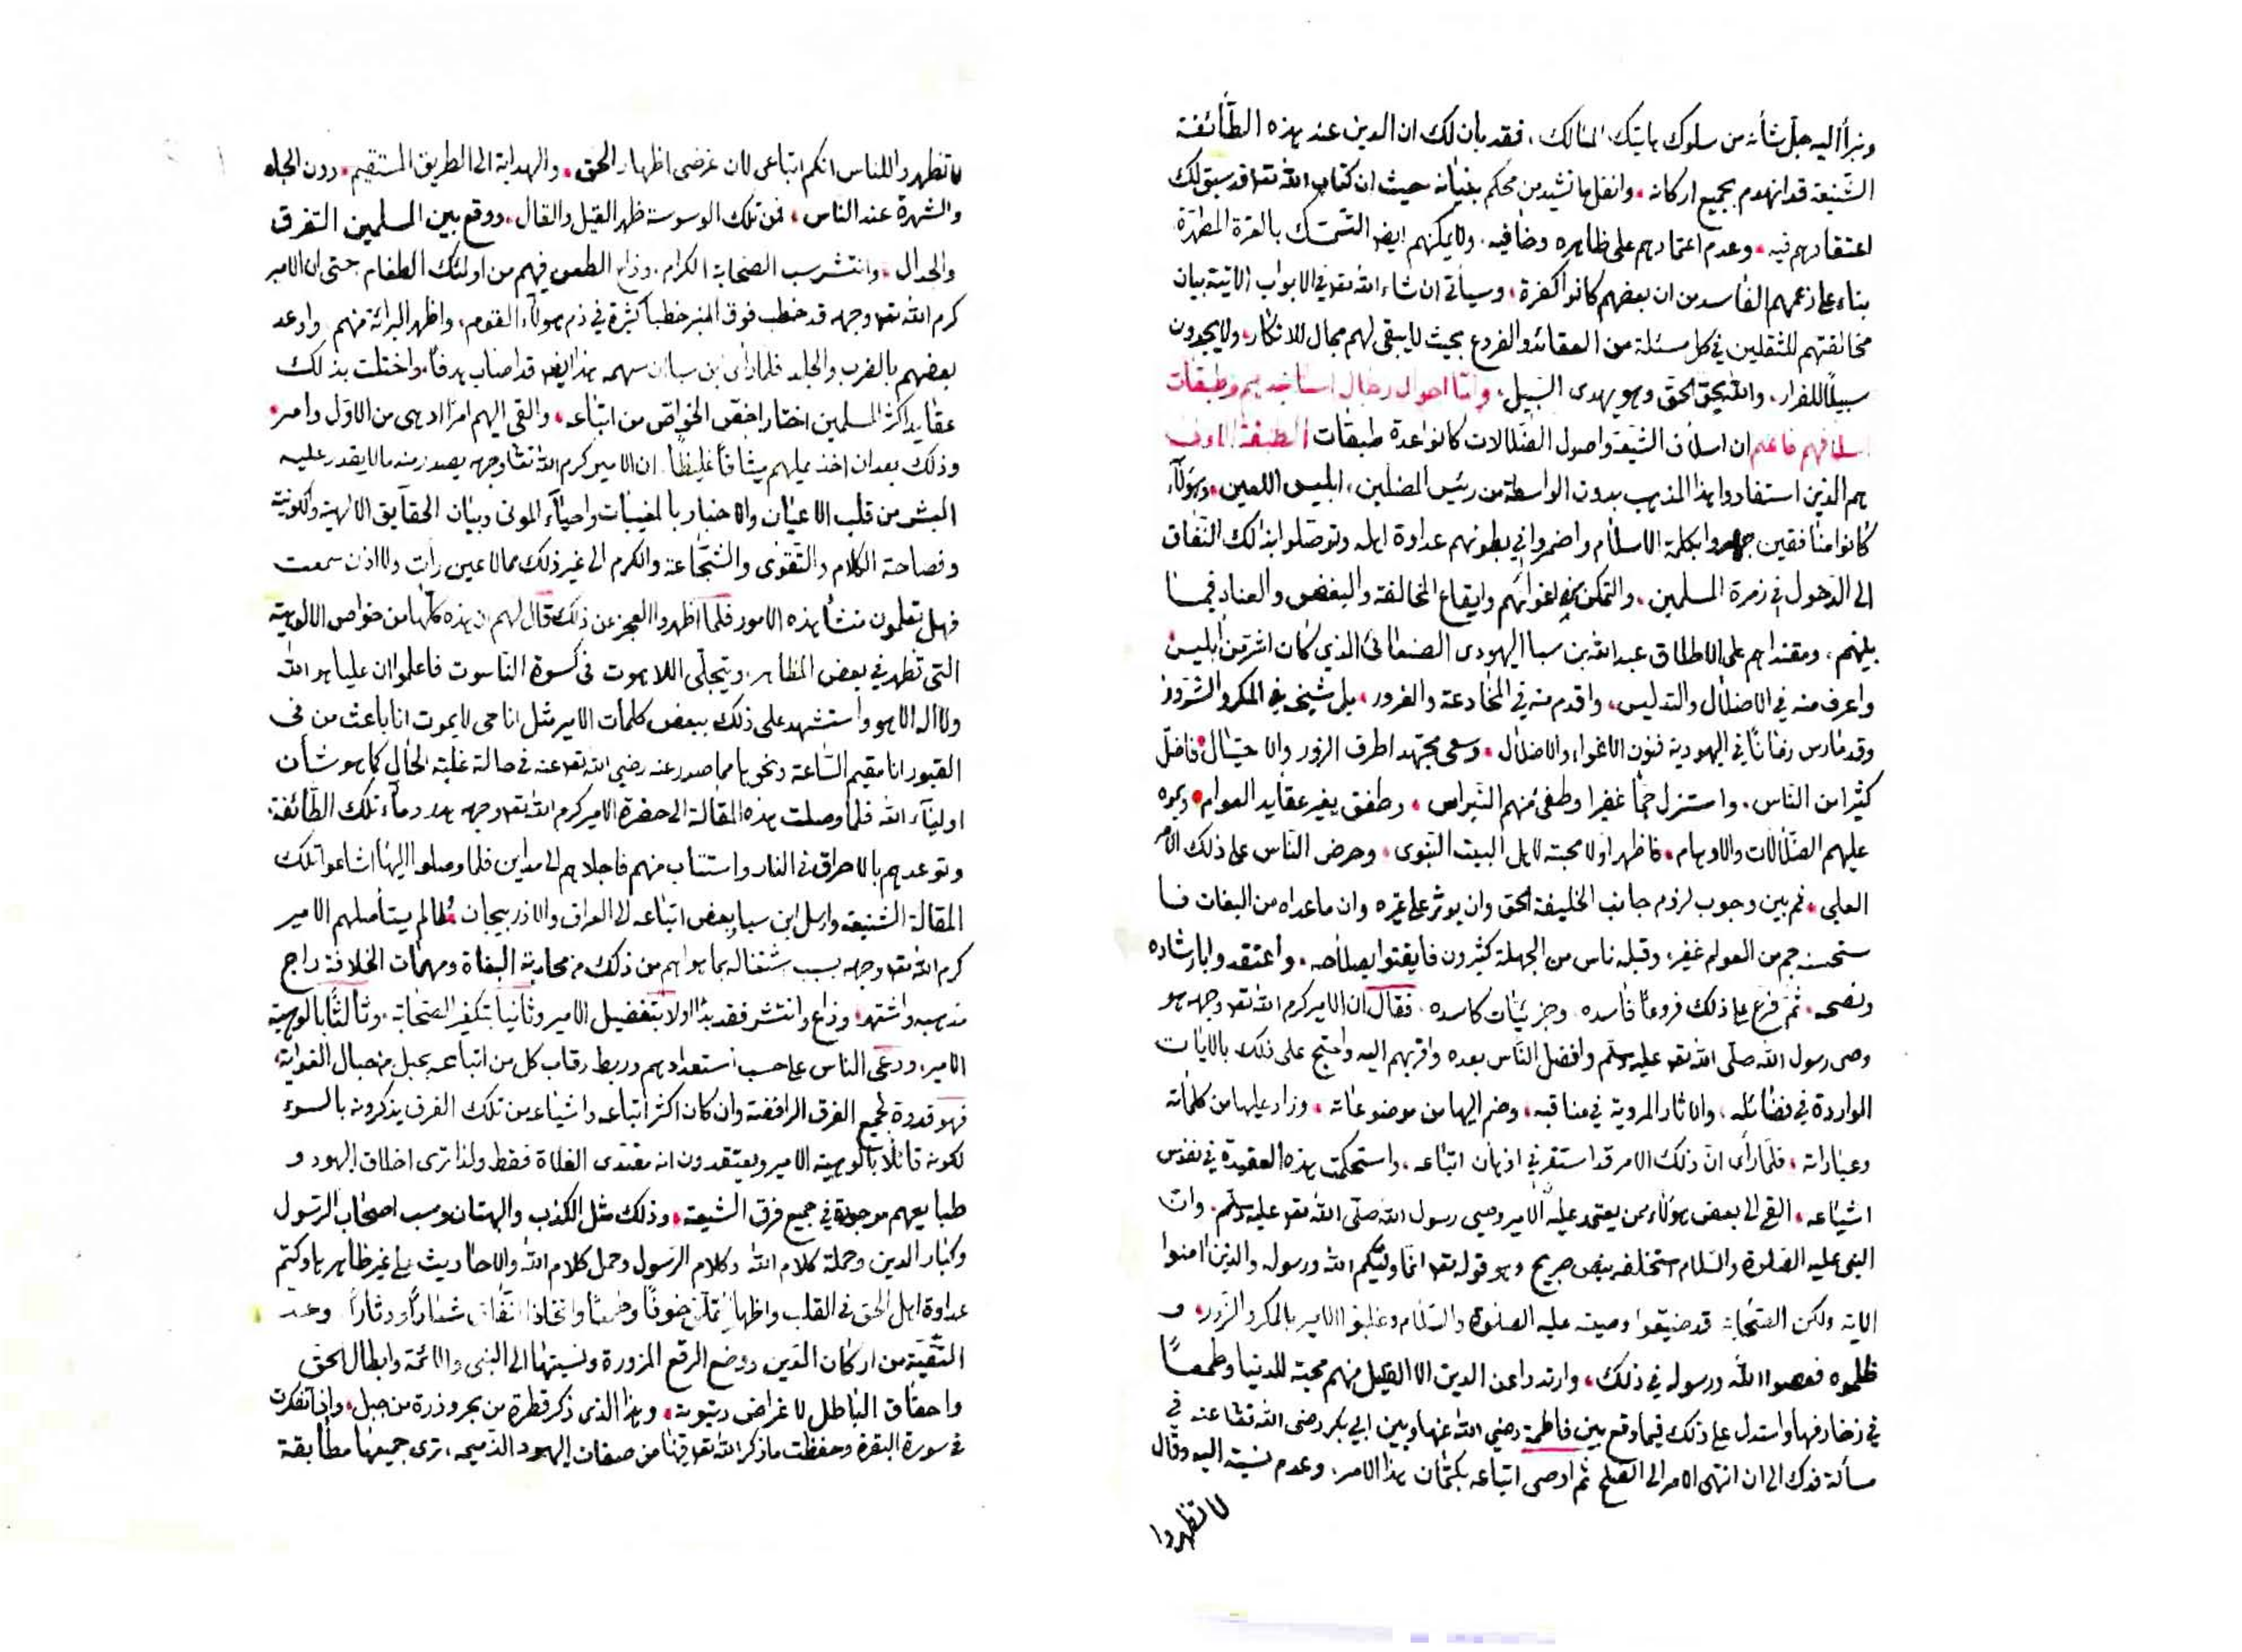 ونبرأ اليه جل شأنه من سلوك هاتيك المسالك، فقد بان لك ان الدين عند هذه الطائفة
الشنيعة قد انهدم بجميع اركانه، وانفل ما تشيد من محكم بنيانه حيث ان كتاب الله تعا قد سبق لك
اعتقادهم فيه، وعدم اعتمادهم على ظاهره وخافيه، ولا يمكنهم ايضا التمسك بالعترة المطهرة
بناء على زعمهم الفاسد من ان بعضهم كانوا كفرة، وسيأتي ان شاء الله تعه في الابواب الآتية بيان
مخالفتهم للثقلين في كل مسئلة من العقائد والفروع بحيث لا يبقى لهم مجال للانكار، ولا يجدون
سبيلا للفرار، والله يحق الحق وهو يهدى السبيل، واما احوال رجال اساتيدهم وطبقات
اسلافهم فاعلم ان اسلاف الشيعة واصول الضلالات كانوا عدة طبقات الطبقة الاولى
هم الذين استفادوا هذا المذهب بدون الواسطة من رئيس المضلين، ابليس اللعين، وهؤلآء
كانوا منافقين جهروا بكلمة الاسلام واضمروا في بطونهم عداوة اهله وتوصلوا بذلك النفاق
الى الدخول في زمرة المسلمين، والتمكن من اغوائهم وايقاع المخالفة والبغض والعناد فيما
بينهم، ومقتداهم على الاطلاق عبد الله بن سبا اليهودى الصنعانى الذي كان اشر من ابليس
واعرف منه في الاضلال والتدليس، واقدم منه في المخادعة والغرور، بل شيخه في المكر والشرور
وقد مارس زمانا في اليهودية فنون الاغواء والاضلال، وسعى مجتهدا طرف الزور والاحتيال، فاضل
كثيرا من الناس، واستزل جما غفيرا وطفئ منهم النبراس، وطفق يغير عقايد العوام، ويموه
عليهم الضلالات والاوهام، فاظهر اولا محبة لاهل البيت النبوى، وحرض الناس على ذلك الامر
العلي، ثم بين وجوب لزوم جانب الخليفة الحق وان يوثر على غيره وان ما عداه من البغات فا
ستحسنه جم من العوام غفير، وقبله ناس من الجهلة كثيرون فايقنوا بصلاحه، واعتقدوا بارشاده
ونصحه، ثم فرع على ذلك فروعا فاسده، وجزئيات كاسده، فقال ان الامير كرم الله تعه وجهه هو
وصى رسول الله صلى الله تعه عليه وسلم وافضل الناس بعده واقربهم اليه واحتج على ذلك بالايات
الواردة في فضائله، والاثار المروية في مناقبه، وضم اليها من موضوعاته، وزاد عليها من كلماته
وعباراته، فلما رأى ان ذلك الامر قد استقر في اذهان اتباعه، واستحكمت هذه العقيدة في نفوس
اشياعه، القى الى بعض هؤلاء ممن يعتمد عليه ان الامير وصى رسول الله صلى الله تعه عليه وسلم، وان
النبى عليه الصلوة والسلام استخلفه بنص صريح وهو قوله تعه انما وليكم الله ورسوله والذين امنوا
الاية ولكن الصحابة قد ضيعوا وصيته عليه الصلوة والسلام وغلبوا الامير بالمكر والزور، و
ظلموه فعصوا الله ورسوله في ذلك، وارتدوا عن الدين الا القليل منهم محبة للدنيا وطمعا
في زخارفها واستدل على ذلك فيما وقع بين فاطمة رضي الله عنها وبين ابي بكر رضى الله تعا عنه في
مسألة فدك الى ان انتهى الامر الى الصلح ثم اوصى اتباعه بكتمان هذا الامر، وعدم نسبته اليه وقال
لا تظهروا
لا تظهروا للناس انكم اتباعى لان غرضى اظهار الحق، والهداية الى الطريق المستقيم، دون الجاه
والشهرة عند الناس، فمن تلك الوسوسة ظهر القيل والقال، ووقع بين المسلمين التفرق
والجدال، وانتشر سب الصحابة الكرام، وذاع الطعن فيهم من اولئك الطغام حتى ان الامير
كرم الله تعه وجهه قد خطب فوق المنبر خطبا كثيرة في ذم هولآء القوم، واظهر البرائة منهم واوعد
بعضهم بالضرب والجلد فلما راى ابن سبا ان سهمه هذا ايضا قد اصاب هدفا، واختلت بذلك
عقايد اكثر المسلمين اختار اخص الخواص من اتباعه، والقى اليهم امرا ادهى من الاول وامر،
وذلك بعد ان اخذ عليهم ميثاقا غليظا، ان الامير كرم الله تعا وجهه يصدر منه ما لا يقدر عليه
البشر من قلب الاعيان والاخبار بالمغيبات واحيآء الموتى وبيان الحقايق الالهية والكونية
وفصاحة الكلام والتقوى والشجاعة والكرم الى غير ذلك مما لا عين رات ولا اذن سمعت
فهل تعلمون منشأ هذه الامور فلما اظهروا العجز عن ذلك قال لهم ان هذه كلها من خواص الالوهية
التى تظهر في بعض المظاهر، ويتجلى اللاهوت فى كسوة الناسوت فاعلموا ان عليا هو الله
ولا اله الا هو واستشهد على ذلك ببعض كلمات الامير مثل انا حى لا يموت انا باعث من فى
القبور انا مقيم الساعة ونحوها مما صدر عنه رضي الله تعه عنه في حالة غلبة الحال كما هو شأن
اوليآء الله فلما وصلت هذه المقالة الى حضرة الامير كرم الله تعه وجهه هدر دمآء تلك الطائفة،
وتوعدهم بالاحراق في النار واستتاب منهم فاجلاهم الى مداين فلما وصلوا اليها اشاعوا تلك
المقالة الشنيعة وارسل ابن سبا بعض اتباعه الى العراق والاذربيجان فلما لم يستأصلهم الامير
كرم الله تعه وجهه بسبب شتغاله بما هو اهم من ذلك من محاربة البغاة ومهمات الخلافة راج
مذهبه واشتهر، وذاع وانتشر فقد بدأ اولا بتفضيل الامير وثانيا بتكفير الصحابة، وثالثا بالوهية
الامير، ودعى الناس على حسب استعدادهم وربط رقاب كل من اتباعه بحبل من حبال الغواية،
فهو قدوة لجميع الفرق الرافضة وان كان اكثر اتباعه واشياعه من تلك الفرق يذكرونه بالسوء
لكونه قائلا بالوهية الامير ويعتقدون انه مقتدى الغلاة فقط ولذا ترى اخلاق اليهود و
طبايعهم موجودة في جميع فرق الشيعة، وذلك مثل الكذب والبهتان وسب اصحاب الرسول
وكبار الدين وحملة كلام الله وكلام الرسول وحمل كلام الله والاحاديث على غير ظاهرها وكتم
عداوة اهل الحق في القلب واظهار تملق خوفا وطمعا واتخاذ النفاق شعارا ودثارا وعد
التقية من اركان الدين ووضع الرقع المزورة ونسبتها الى النبى والائمة وابطال الحق
واحقاق الباطل لاغراض دنيوية، وهذا الذى ذكر قطرة من بحر وذرة من جبل، واذا تفكرت
في سورة البقرة وحفظت ما ذكر الله تعه فيها من صفات اليهود الذميمه، ترى جميعها مطابقة